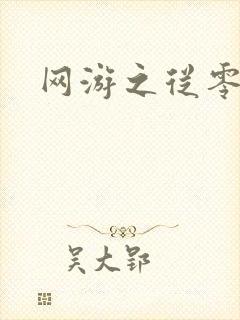 网游之从零
吴大郢